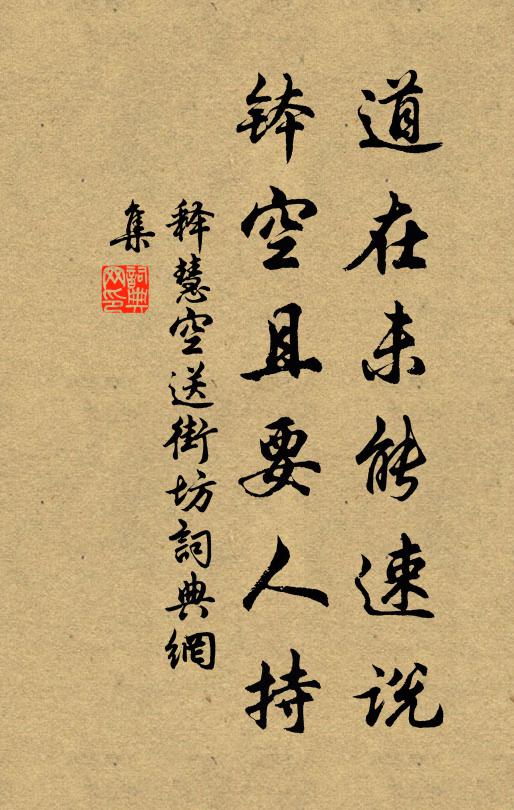 道在未能速说
钵空且要人持
释慧空送街坊詞典網
集
詞典
网印